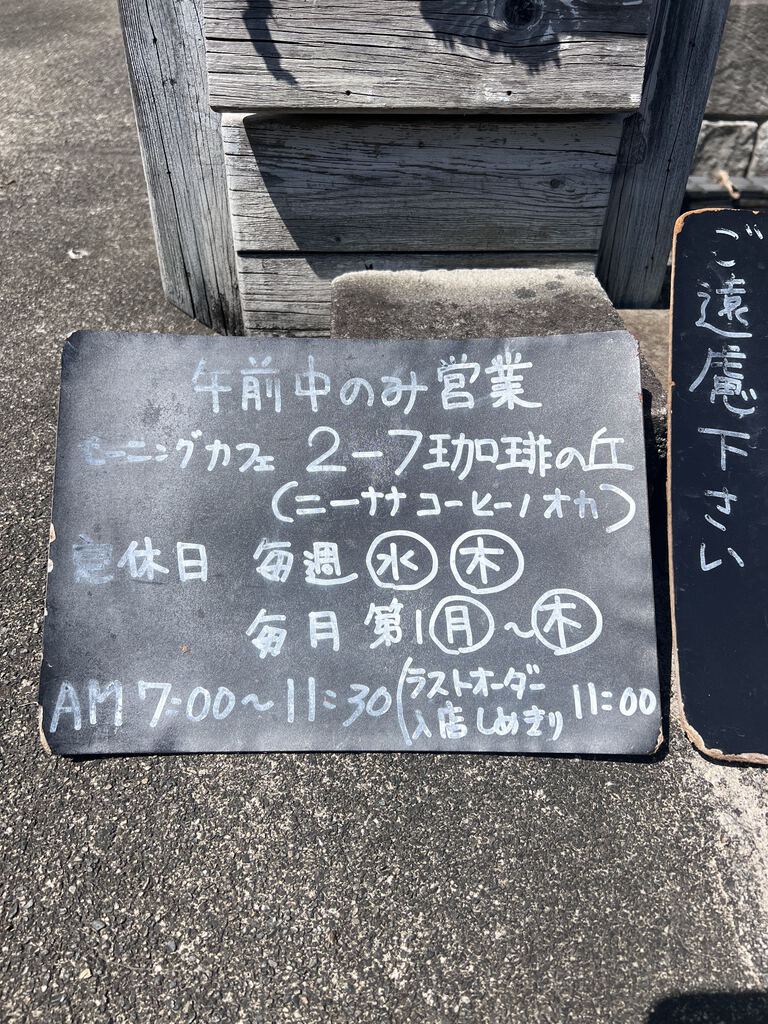 午前中のみ営業
モーニングカフェ 2-7珈琲の丘
(ニーナナコーヒーノオカ)
定休日 毎週㊌㊍
毎月 第1㊊~㊍
AM 7:00~11:30(ラストオーダー 入店しめきり 11:00
ご遠慮下さい